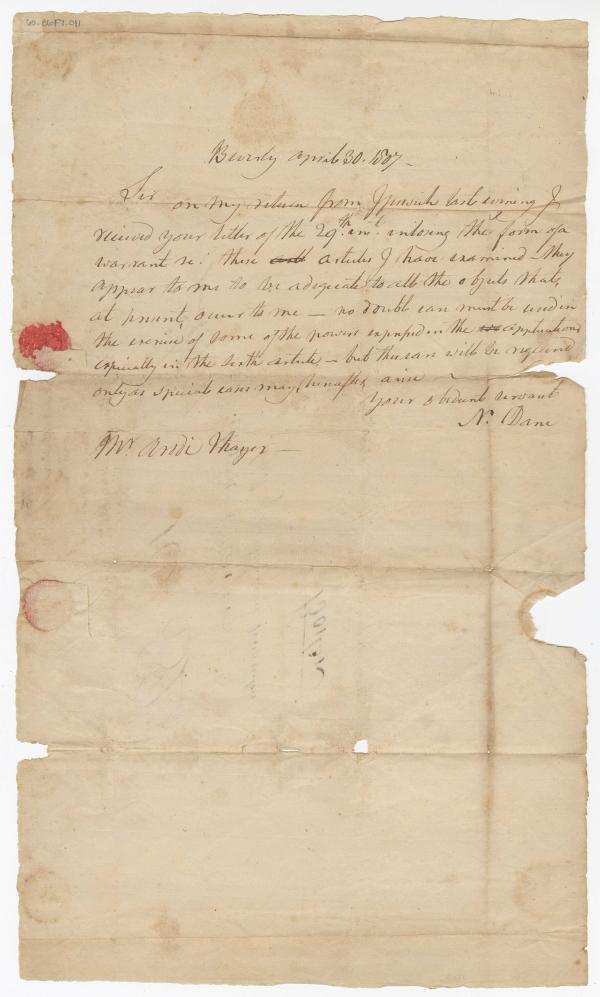 60-B6F7-011
Beverly april 30. 1807.
Sir on my return from Ipswich last evening I
received your letter of the 29th inst. inclosing the form of a
warrant &c. these articles I have examined - they
appear to me to be adequate to all the objects that
at present occur to me — no doubt care must be used in
the exercise of some of the powers expressed in the application
especially in the sixth article — but this can will be required
only as special cases may hereafter arise
your obedient servant
N. Dane
Mr. Arodi Thayer —